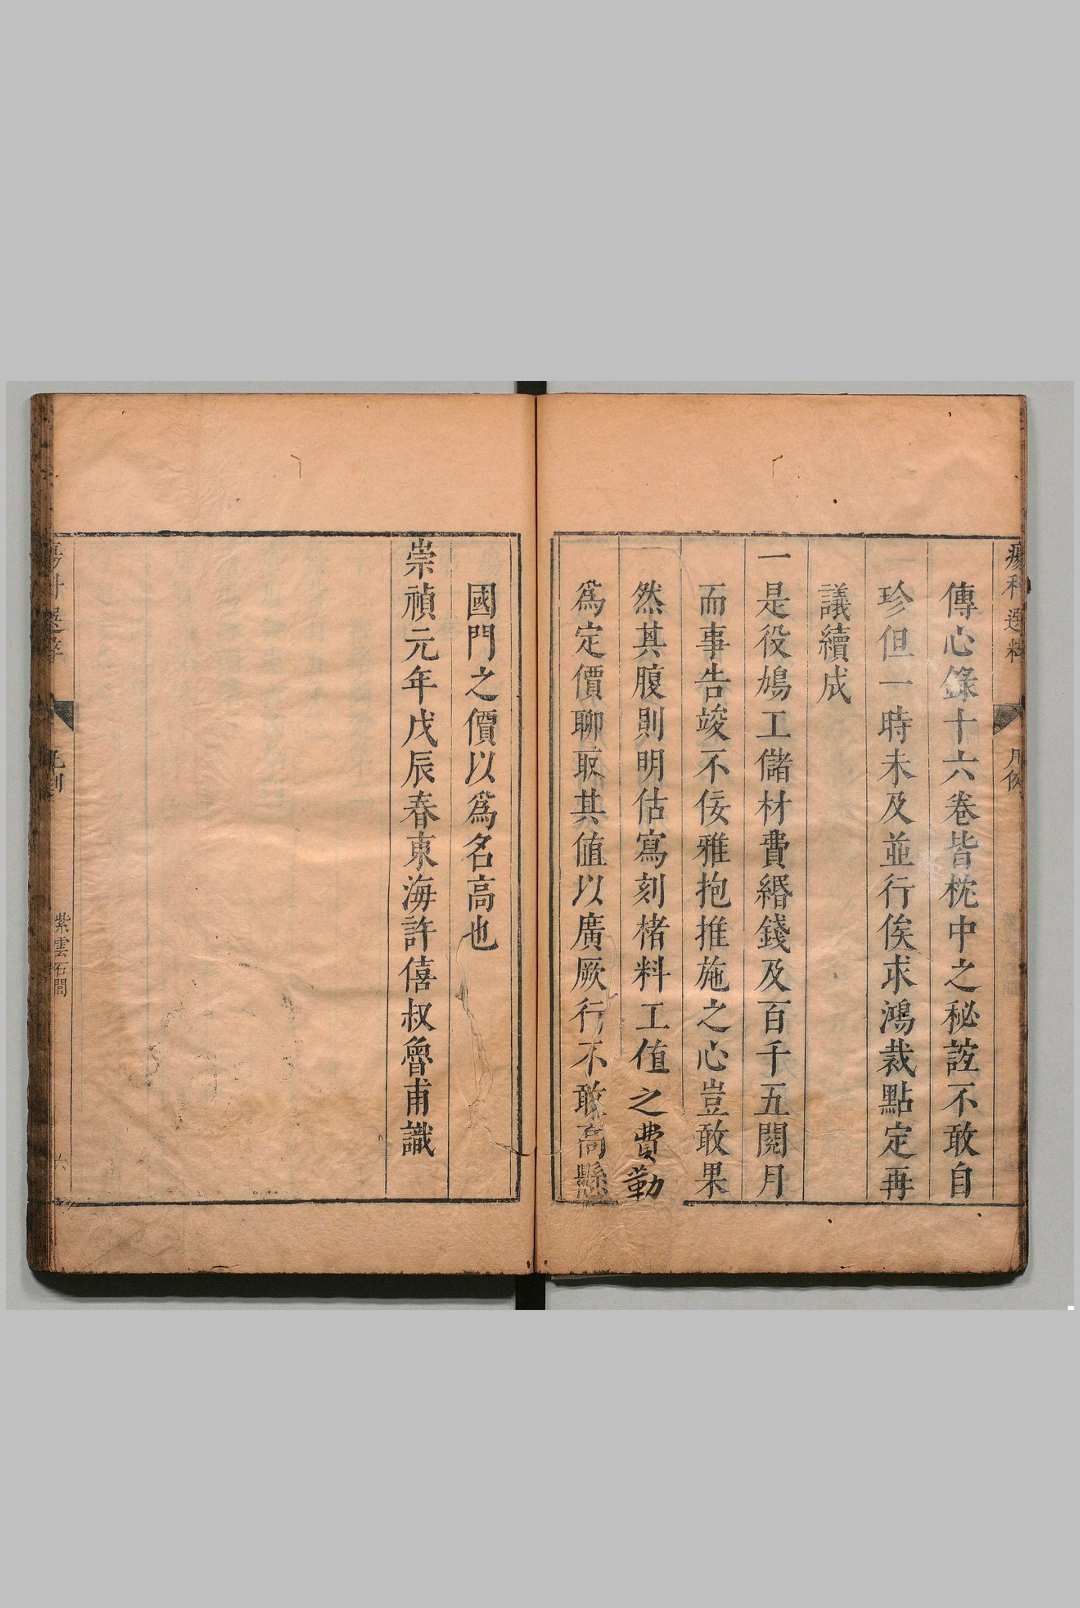 瘍科選粹
凡例
傳心錄十六卷皆枕中之秘誼不敢自
珍但一時未及並行俟求鴻裁點定再
議續成
一是役鳩工儲材費緡錢及百千五閱月
而事告竣不佞雅抱推施之心豈敢果
然其腹則明估寫刻楮料工值之費勒
爲定價聊取其值以廣厥行不敢高懸
國門之價以爲名高也
崇禎元年戊辰春東海許僖叔魯甫識
瘍科選粹
凡例
紫雲石閣
六